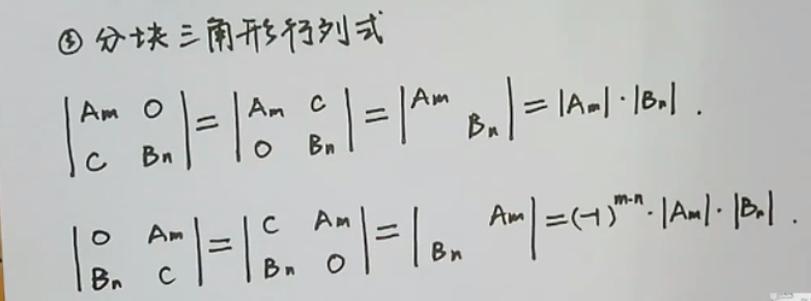 ③ 分块三角形行列式
|Am 0; C Bn| = |Am C; 0 Bn| = |Am ; Bn| = |Am|·|Bn|.
|0 Am; Bn C| = |C Am; Bn 0| = | Am; Bn | = (-1)^{m·n}·|Am|·|Bn|.